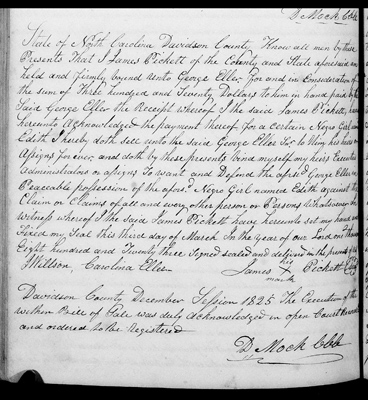 D Mock Clk
State of North Carolina Davidson County, Know all men by these
Presents That I James Pickett of the County and State aforesaid am
held and firmly bound unto George Eller for and in Consideration of
the sum of Three hundred and Seventy Dollars to him in hand paid by the
Said George Eller the Receipt whereof I the said James Pickett, have
hereunto Acknowledged the payment thereof for a Certain Negro Girl named
Edith I hereby doth sell unto the said George Eller to him his heirs or
Assigns for ever, and doth by these presents bind myself my heirs Executors
Administrators or assigns To warrant and Defend the afrsd. George Eller in
Peaceable possession of the afors. Negro Girl named Edith against the
Claim or Claims of all and every other person or Persons Whatsoever In
witness whereof I the Said James Pickett have hereunto set my hand and
fixed my Seal this third day of March In the year of our Lord one thousand
Eight hundred and Twenty three Signed sealed and delivered in the presents of
J Willson, Carolina Eller James his X mark Pickett
Davidson County December Session 1825 The Execution of the
within Bill of Sale was duly Acknowledged in open Court
and ordered to be Registered
D Mock Clk